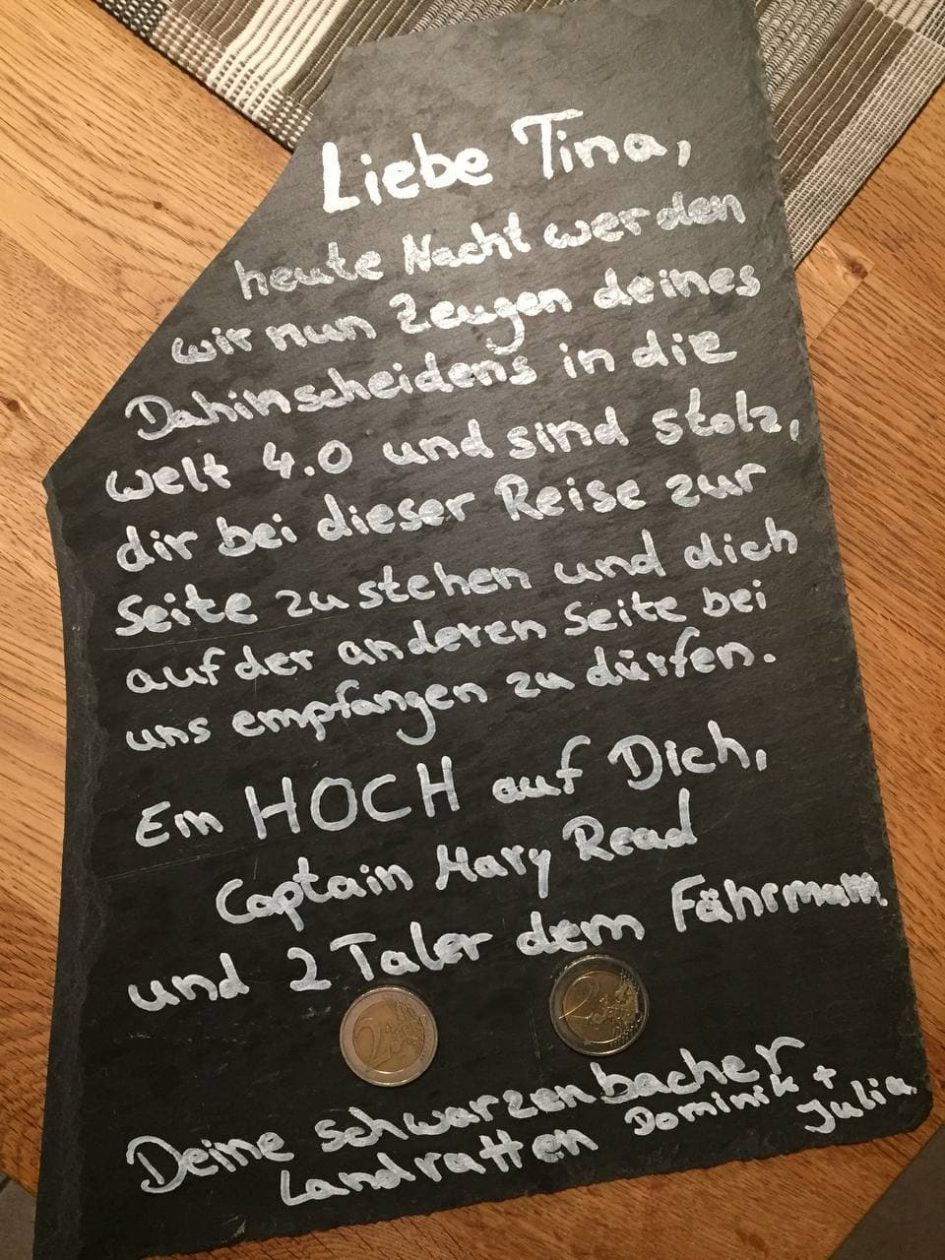 Liebe Tina,
heute Nacht werden
wir nun Zeugen deines
Dahinscheidens in die
Welt 4.0 und sind stolz,
dir bei dieser Reise zur
Seite zu stehen und dich
auf der anderen Seite bei
uns empfangen zu dürfen.
Ein HOCH auf Dich,
Captain Mary Read
und 2 Taler dem Fährmann.
2 2
Deine Schwarzenbacher
Landratten Dominik +
Julia